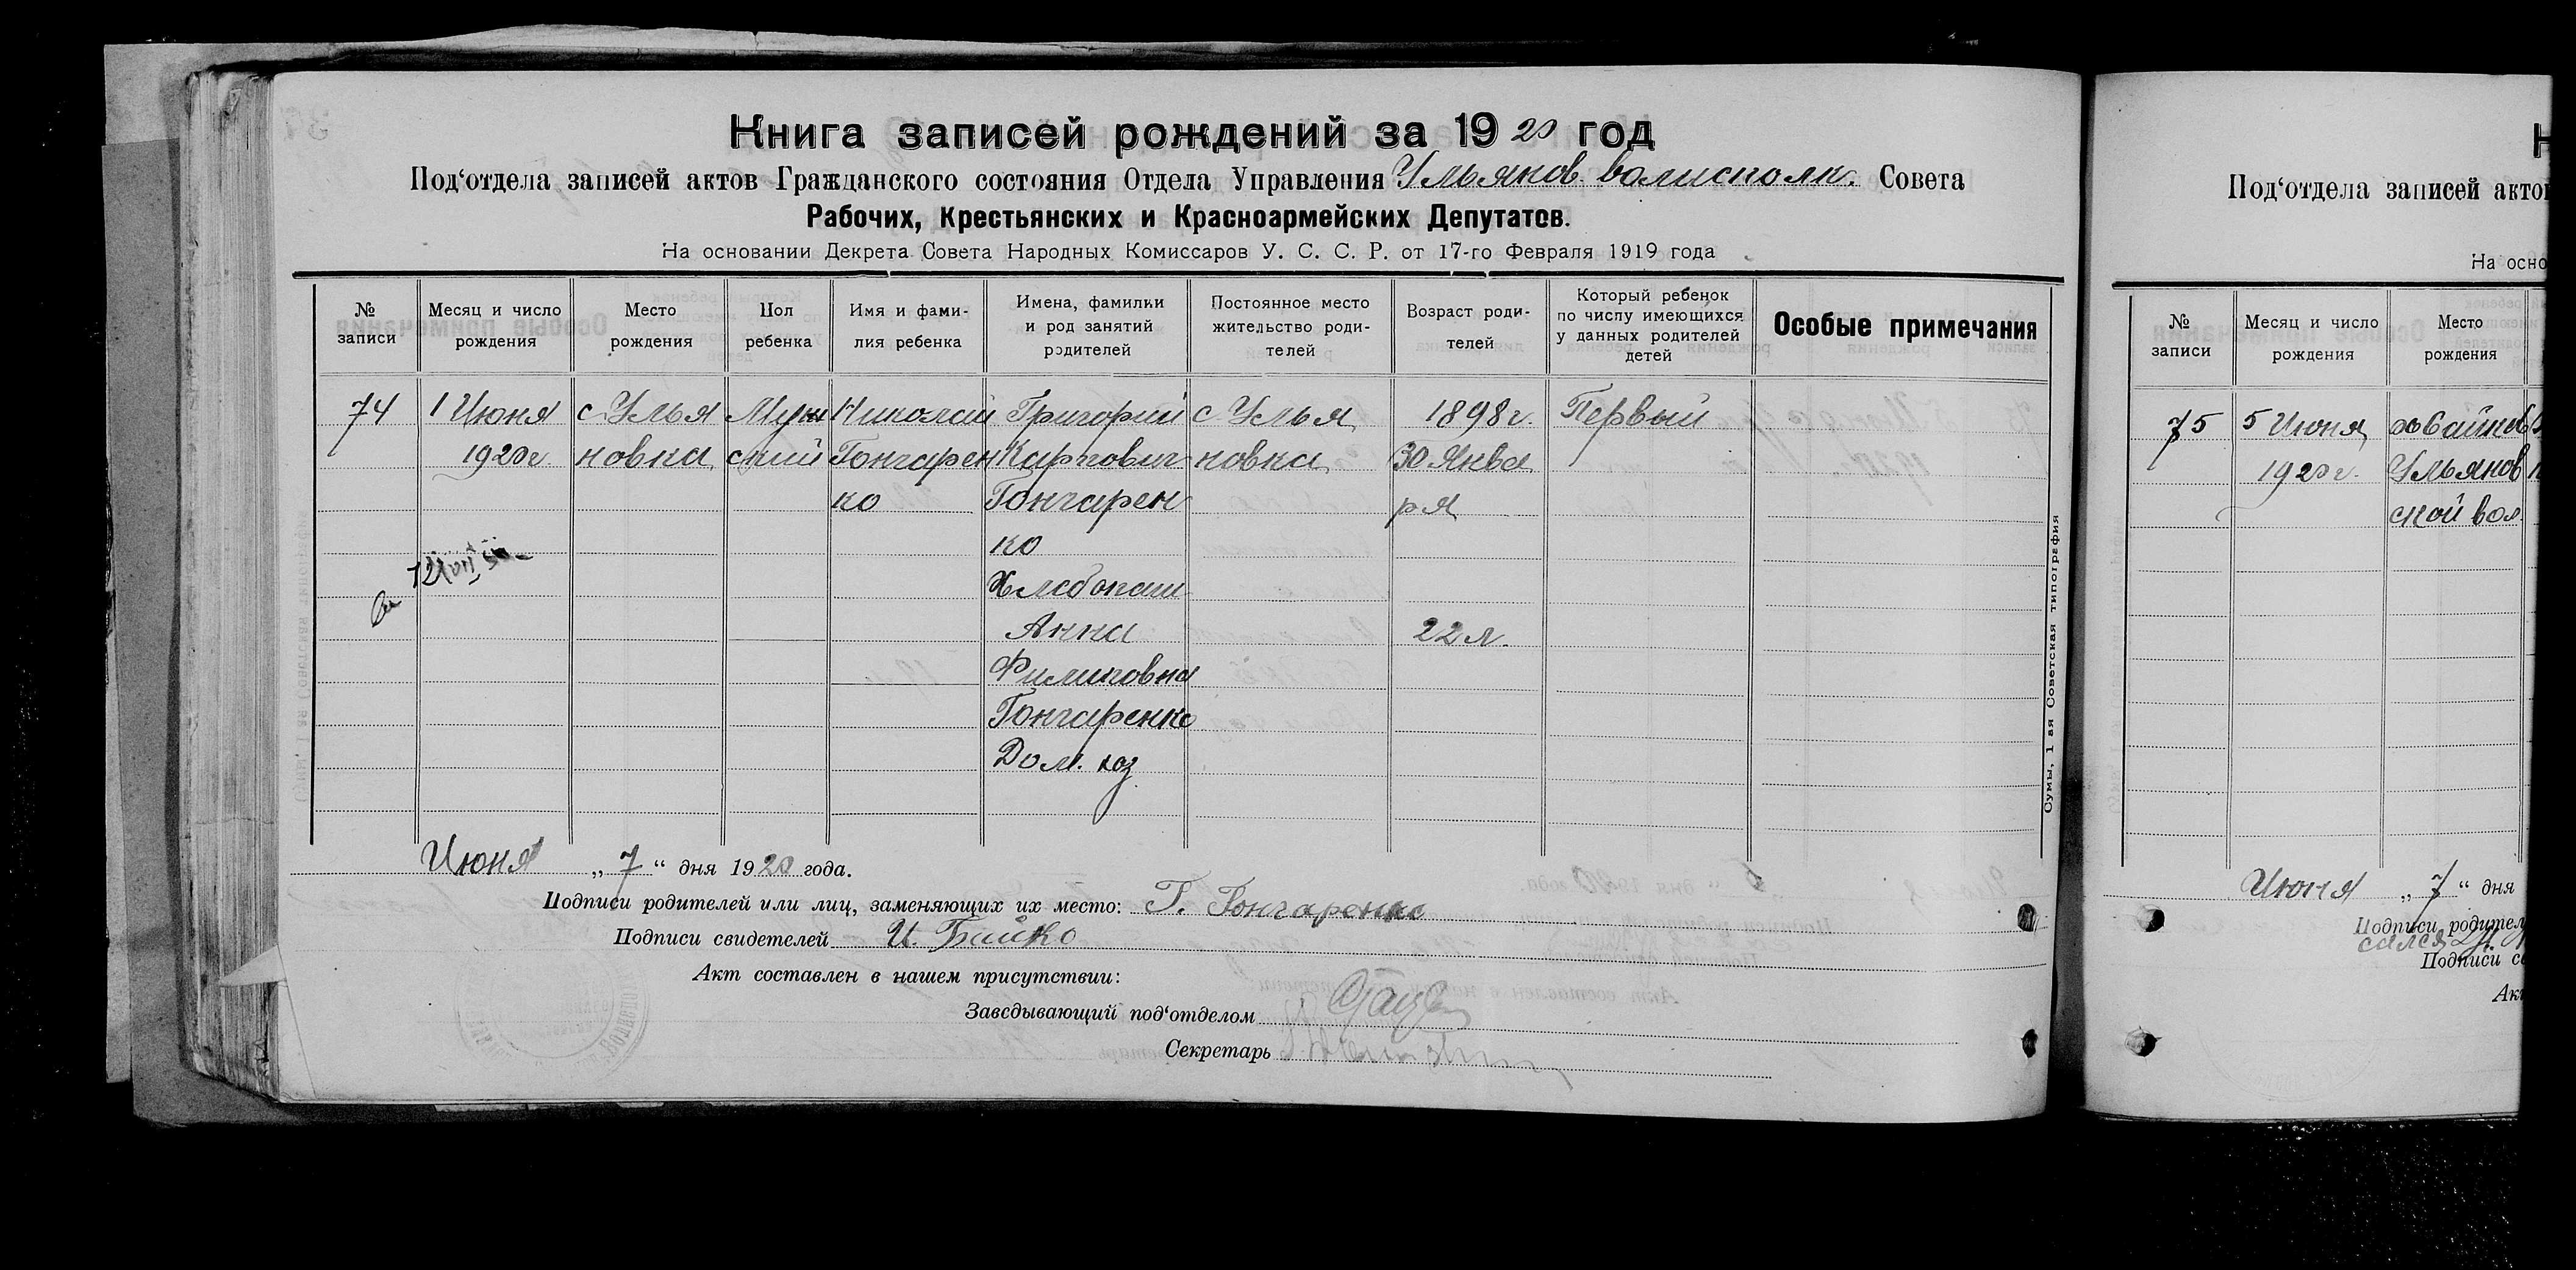 Книга записей рождений за 1920 год
Под‘отдела записей актов Гражданского состояния Отдела Управления Ульянов. волисполк. Совета
Рабочих, Крестьянских и Красноармейских Депутатов.
На основании Декрета Совета Народных Комиссаров У. С. С. Р. от 17-го Февраля 1919 года
№ записи
Месяц и число рождения
Место рождения
Пол ребенка
Имя и фами-
лия ребенка
Имена, фамилии
и род занятий
родителей
Постоянное место
жительство роди-
телей
Возраст роди-
телей
Который ребенок
по числу имеющихся
у данных родителей
детей
Особые примечания
74
1 Июня
1920 г.
с Улья
новка
Муж
ский
Николай
Гончарен
ко
Григорий
Карпович
Гончарен
ко
Хлебопаш
Анна
Филиповна
Гончаренко
Дом. хоз
с Улья
новка
1898 г.
30 Янва
ря
22 л.
Первый
Июня „ 7 “ дня 1920 года.
Подписи родителей или лиц, заменяющих их место: Г. Гончаренко
Подписи свидетелей И. Бойко
Акт составлен в нашем присутствии:
Заведывающий под‘отделом
Секретарь
Сумы, 1 ая Советская типография
Под‘отдела записей акто
На осно
№ записи
Месяц и число рождения
Место рождения
75
5 Июня
1920 г.
Ульянов
ской вол.
Июня „ 7 “ дня
Подписи родител
Подписи с
Ак